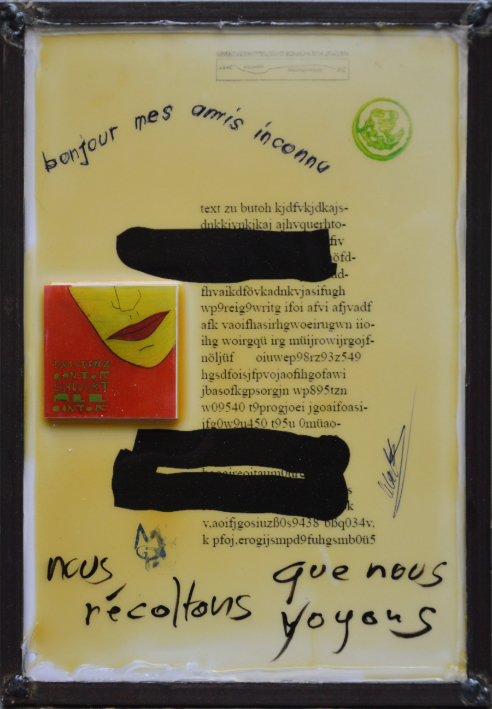 bonjour mes amis inconnu
text zu butoh kjdfvkjdkajs-
dnkkivnkjkaj ajhvquerhto-
fiv
öfd-
dd-
fhvaikdfövkadnkvjasifugh
wp9reig9writg ifoi afvi afjvadf
afk vaoifhasirhgwoeirugwn iio-
ihg woirgqü irg müijrowijrgojf-
nöljüf oiuwep98rz93z549
hgsdfoisjfpvojaofihgofawi
jbasofkgpsorgjn wp895tzn
w09540 t9progjoei jgoaifoasi-
jfg0w9u450 t95u 0müao-
s
k
v.aoifjgosiuzß0s9438 bbq034v,
k pfoj.erogijsmpd9fuhgsmb0ü5
ALL
nous que nous
récoltons voyons